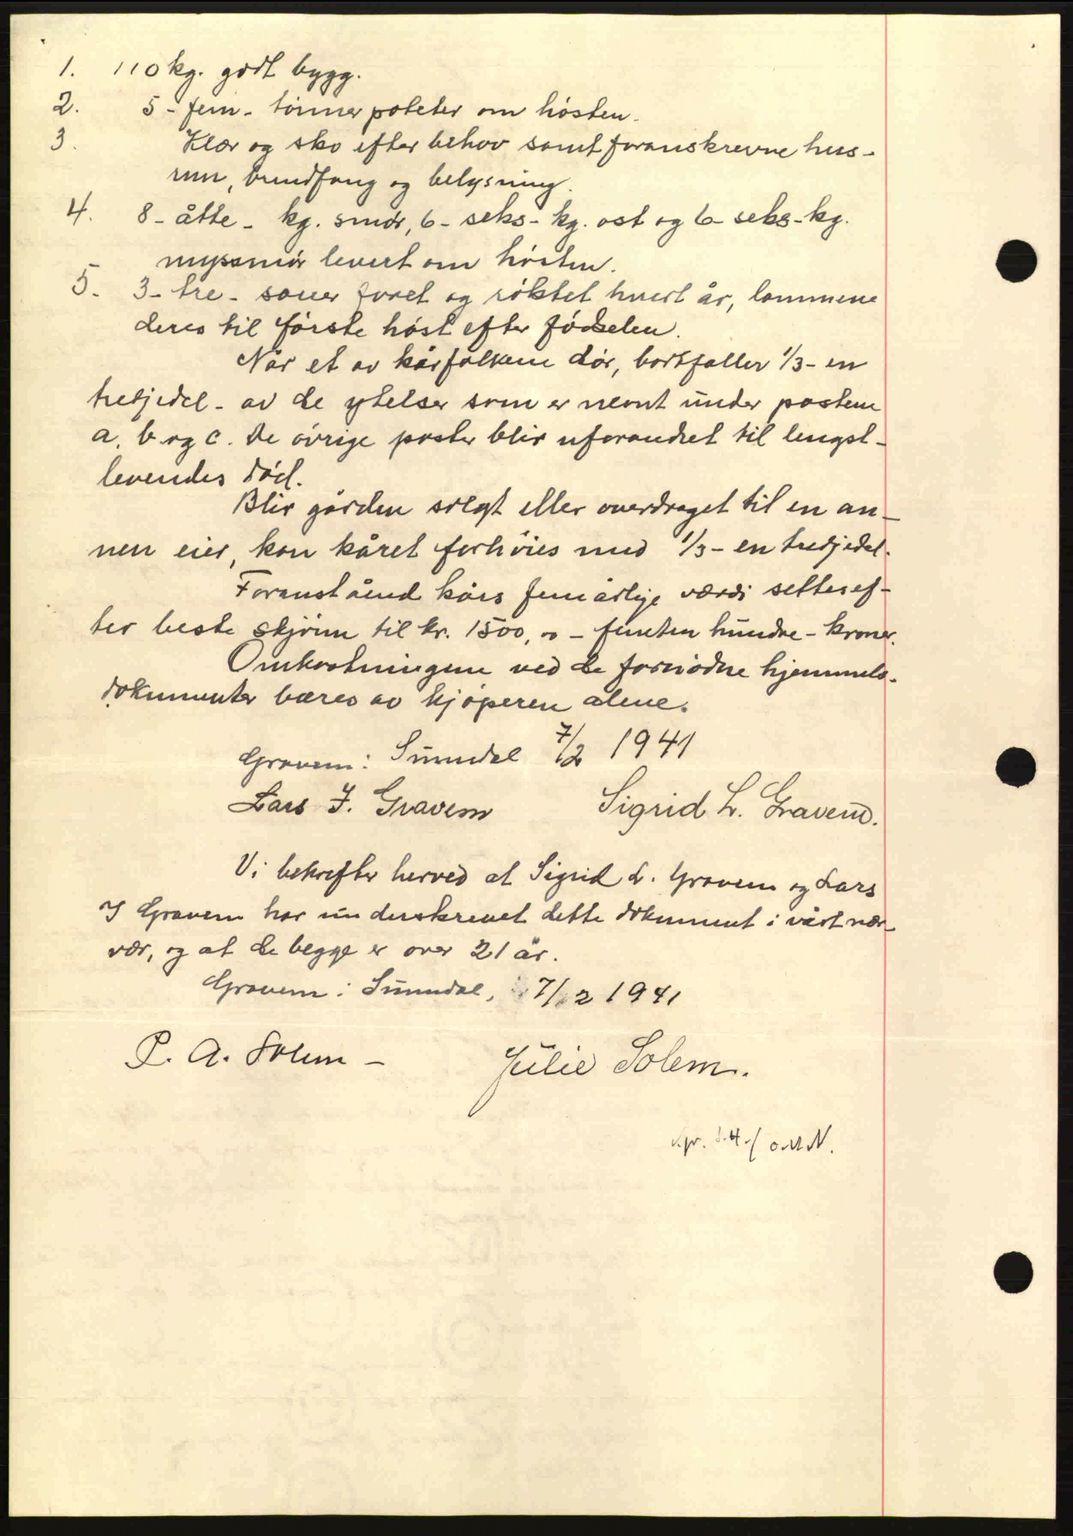 1. 110 kg. godt bygg.
2. 5 - fem - tønner poteter om høsten.
3. Klær og sko efter behov samt foranskrevne hus-
rum, brendfang og belysning.
4. 8 - åtte - kg. smør, 6 - seks - kg. ost og 6 seks - kg.
myssmør levert om høsten.
5. 3 - tre - sauer foret og røktet hvert år, lammene
deres til første høst efter fødselen.
Når et av kårfolkene dør, bortfaller 1/3 - en
tredjedel - av de ytelser som er nevnt under postene
a. b. og c. De øvrige poster blir uforandret til lengst-
levendes død.
Blir gården solgt eller overdraget til en an-
nen eier, kan kåret forhøies med 1/3 - en tredjedel.
Foranstående kårs femårlige værdi settes ef-
ter beste skjønn til kr. 1500,00 - femten hundre - kroner.
Omkostningene ved de fornødne hjemmels-
dokumenter bæres av kjøperen alene.
Gravem i Sunndal 7/2 1941
Lars J. Gravem Sigrid L. Gravem.
Vi bekrefter herved at Sigrid L. Gravem og Lars
J Gravem har underskrevet dette dokument i vårt nær-
vær, og at de begge er over 21 år.
Gravem i Sunndal, 7/2 1941
P. A. Solem - Julie Solem.